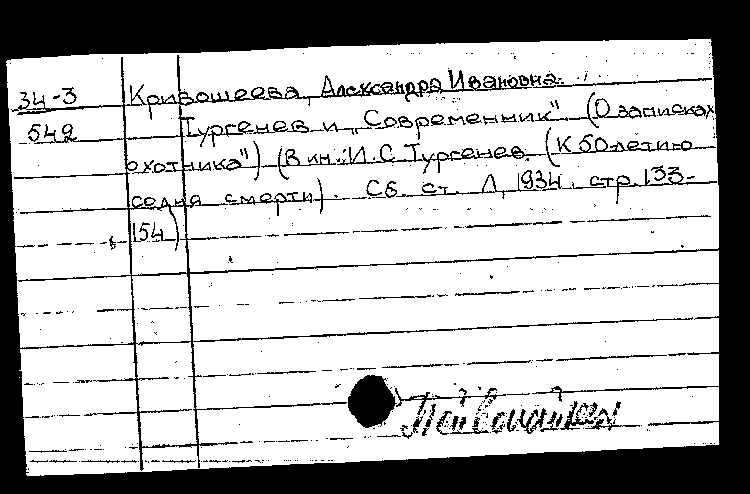 34-3 Кривошеева, Александра Ивановна.
542 Тургенев и „Современник" (О записках
охотника") (В кн.: И.С. Тургенев. (К 50-летию
со дня смерти). Сб. ст. Л, 1934. стр. 133-
154)